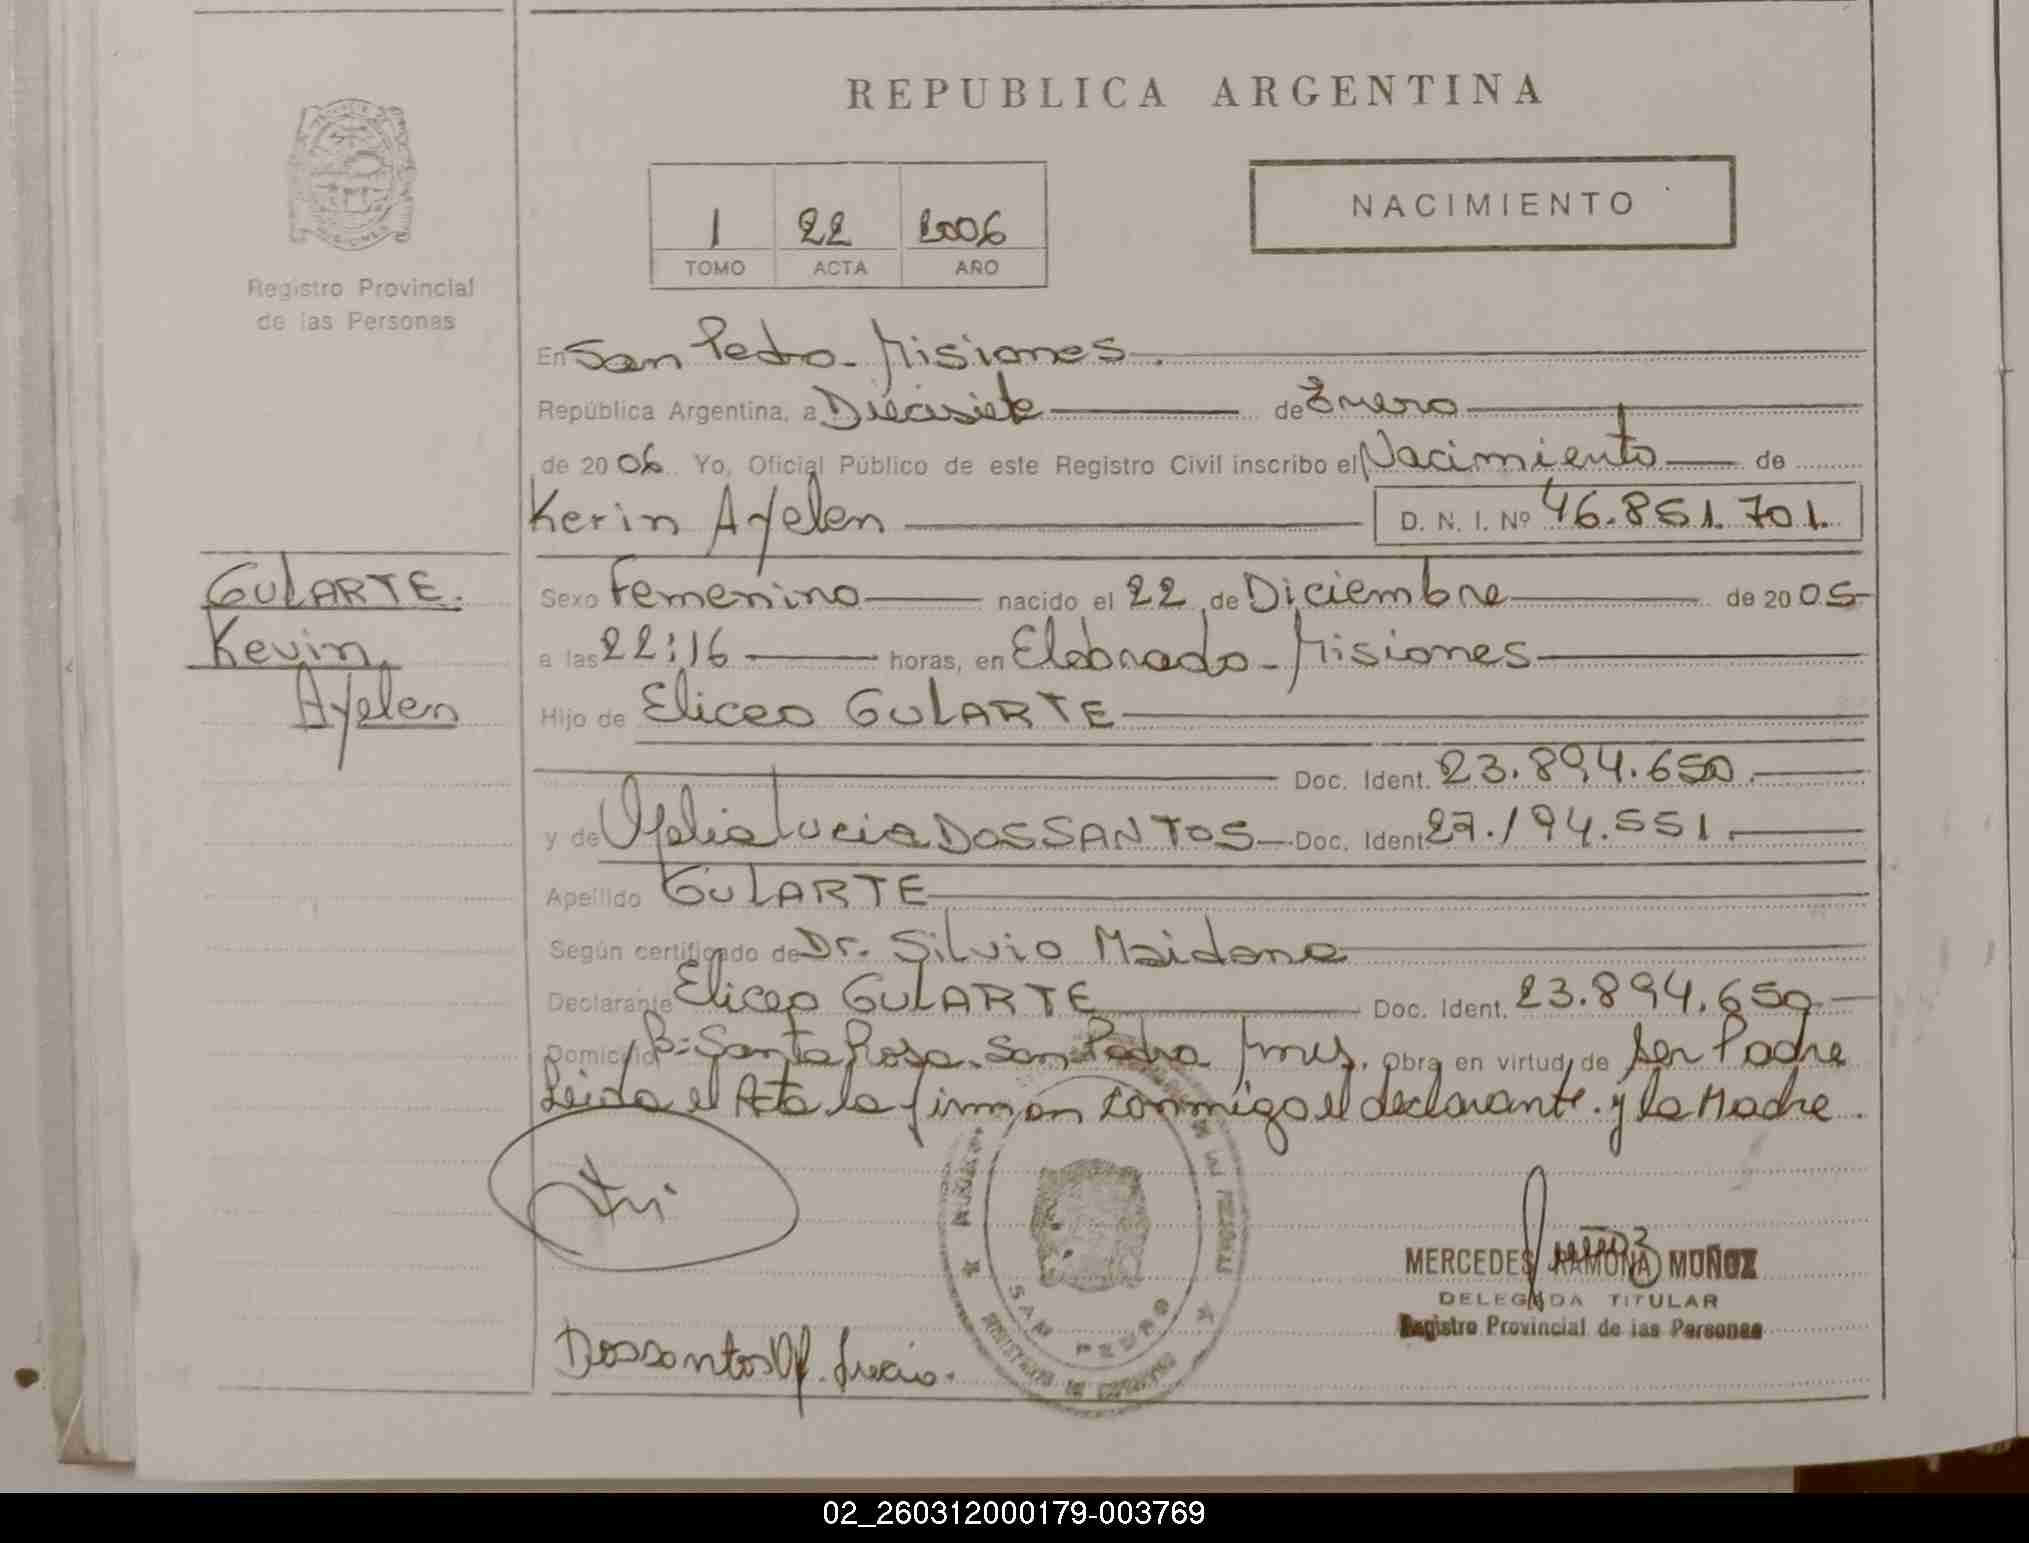 REPUBLICA ARGENTINA
1 22 2006
TOMO ACTA AÑO
NACIMIENTO
Registro Provincial
de las Personas
En San Pedro - Misiones
República Argentina, a Diecisiete de Enero
de 2006 Yo, Oficial Público de este Registro Civil inscribo el Nacimiento de
Kerin Ayelen D. N. I. Nº 46.851.701.
GULARTE.
Kevin
Ayelen
Sexo Femenino nacido el 22 de Diciembre de 2005
a las 22:16 horas, en Eldorado - Misiones
Hijo de Eliceo GULARTE
Doc. Ident. 23.894.650
y de Ofelia Lucia DOSSANTOS Doc. Ident 27.194.551
Apellido GULARTE
Según certificado de Dr. Silvio Maidana
Declarante Eliceo GULARTE Doc. Ident. 23.894.650
Domicilio Bº Santa Rosa - San Pedro Mnes. Obra en virtud de ser Padre
Leida el Acta la firman conmigo el declarante y la Madre.
MERCEDES RAMONA MUÑOZ
DELEGADA TITULAR
Registro Provincial de las Personas
SAN PEDRO
Dossantos Of. Lucia.
02_260312000179-003769